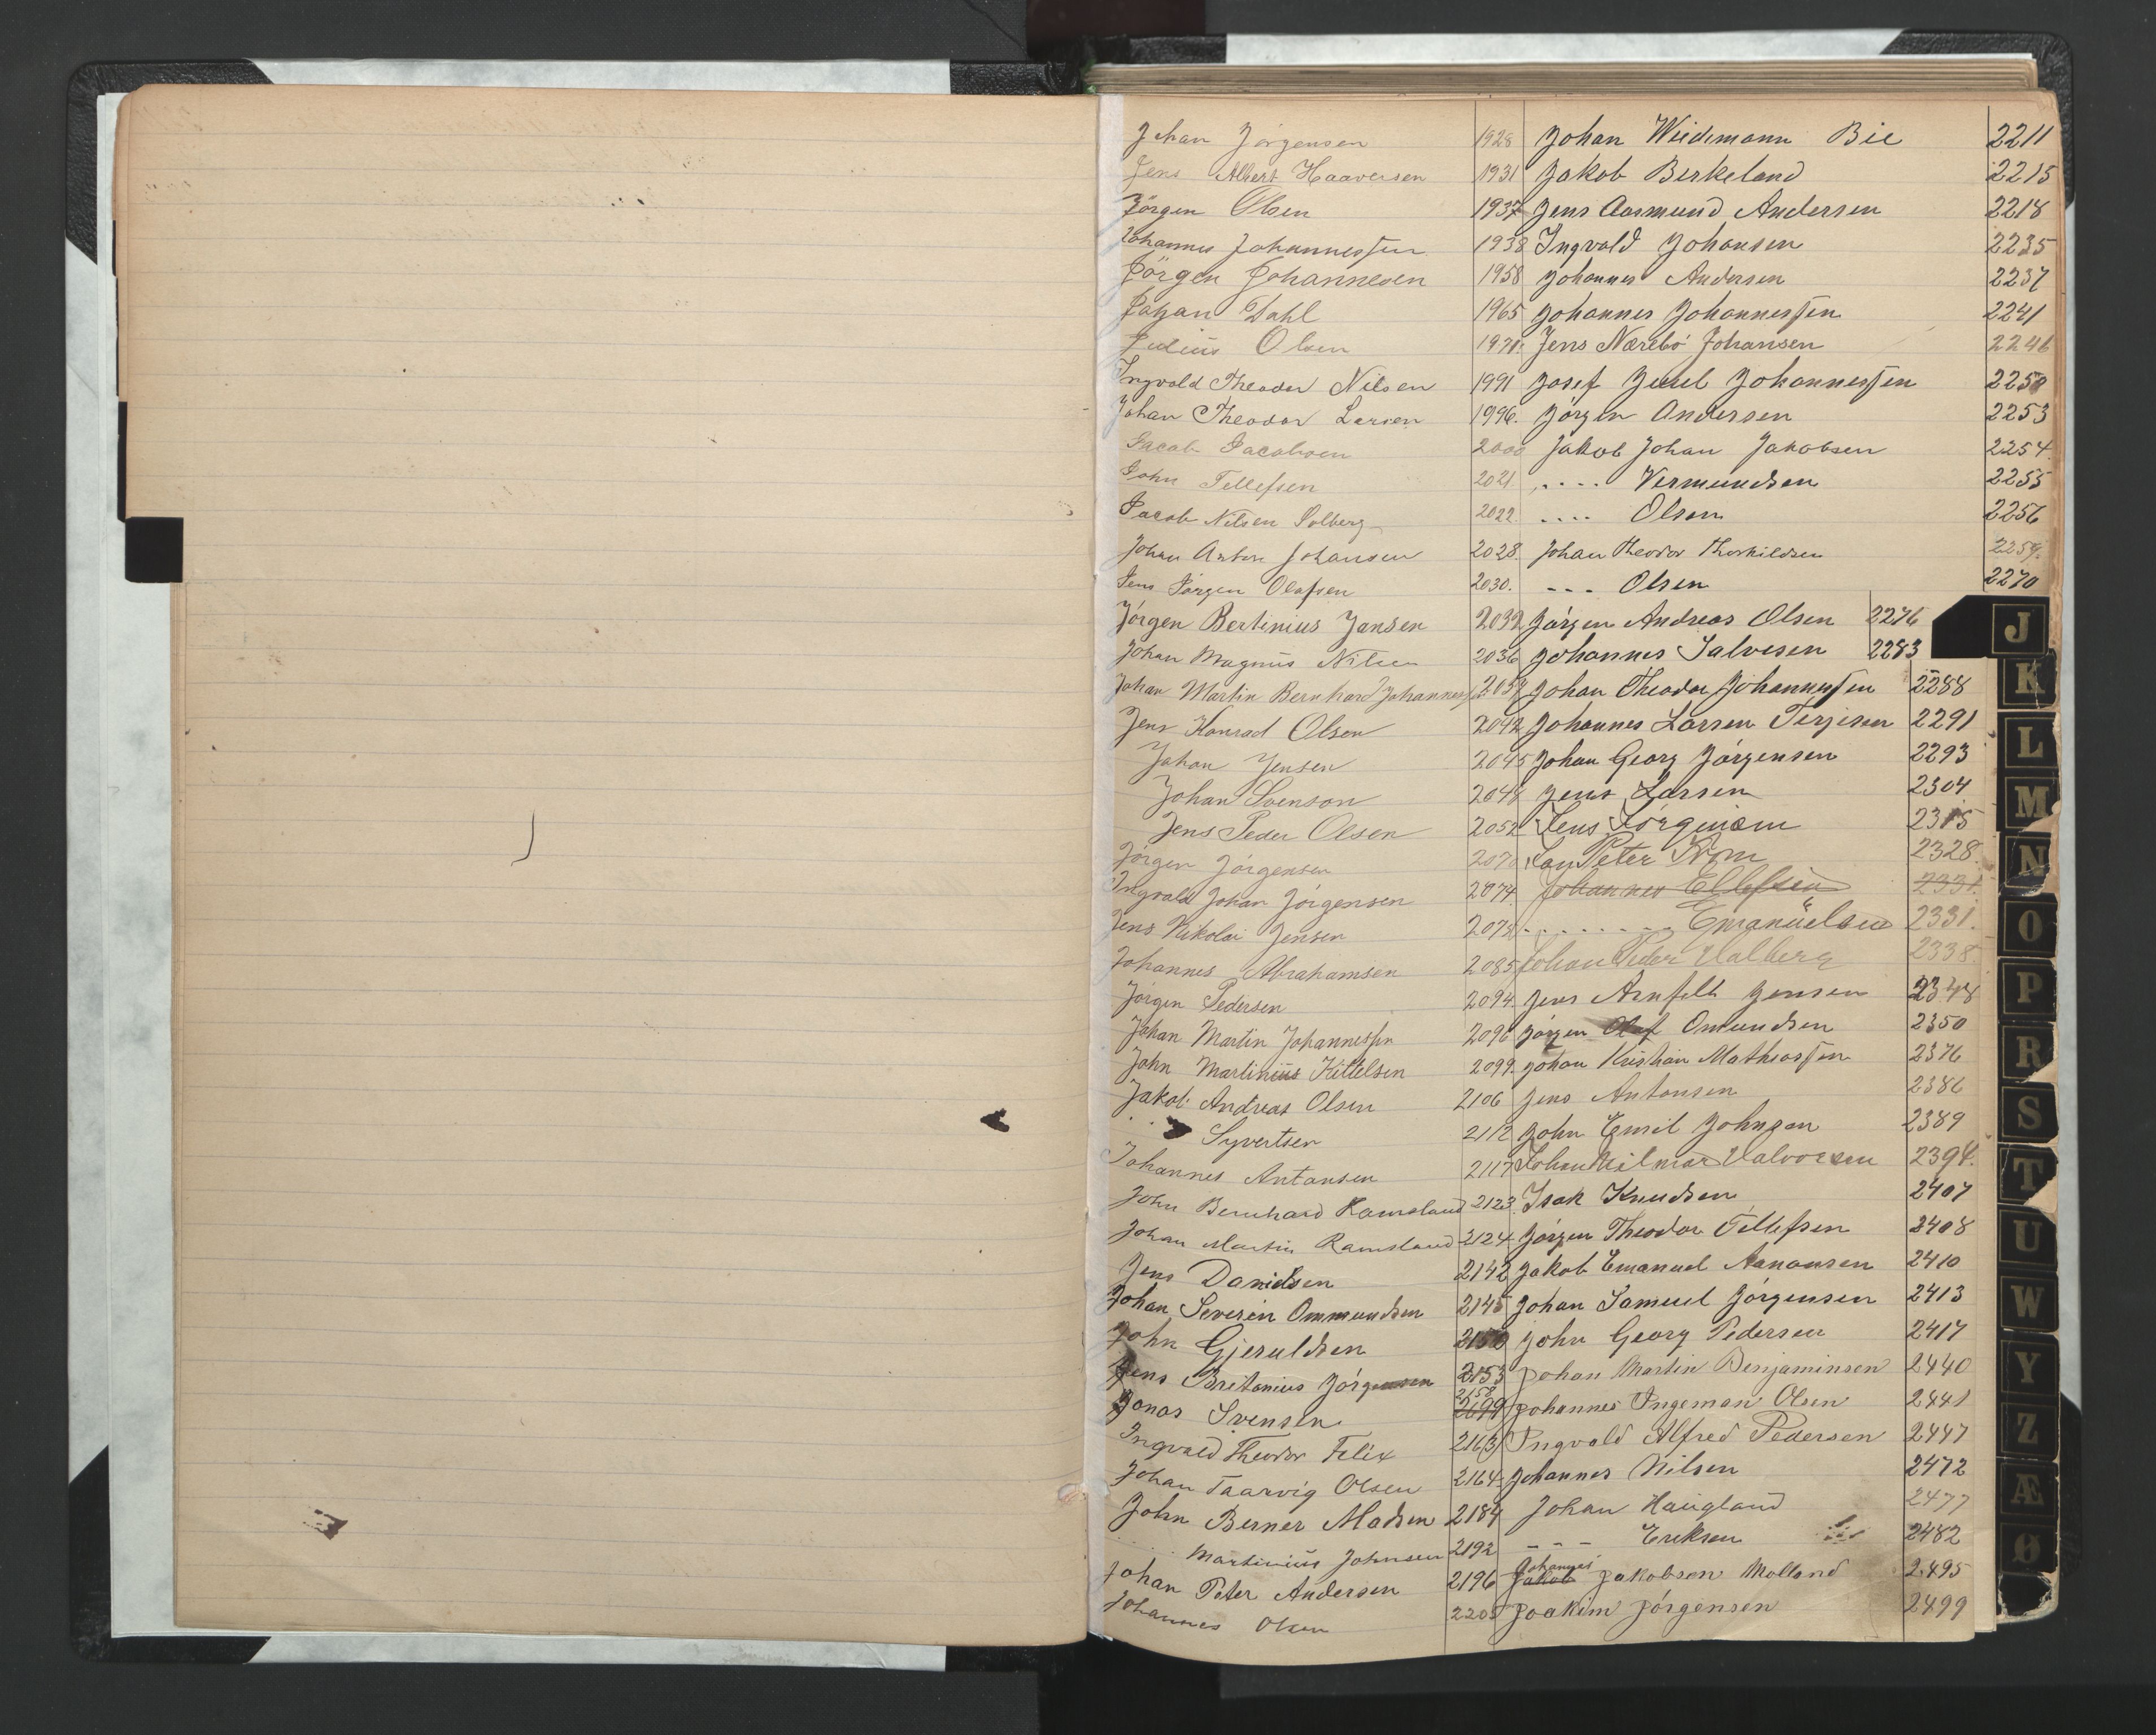 Johan Jörgensen 1928
Jens Albert Haaversen 1931
Jörgen Olsen 1937
Johannes Johannessen 1938
Jörgen Johannesen 1958
Johan Dahl 1965
Julius Olsen 1971.
Ingvald Theodor Nilsen 1991
Johan Theodor Larsen 1996.
Jacob Jacobsen 2000
John Tellefsen 2021.
Jacob Nilsen Solberg 2022.
Johan Anton Johansen 2028.
Jens Jörgen Olafsen 2030.
Jörgen Bertinius Jansen 2032
Johan Magnus Nilsen 2036
Johan Martin Bernhard Johannes
Jens Konrad Olsen 2042
Johan Jensen 2045
Johan Svenson 2048
Jens Peder Olsen 2052
Jörgen Jörgensen 2070
Ingvald Johan Jörgensen 2074
Jens Nikolai Jensen 2078
Johannes Abrahamsen 2085
Jörgen Pedersen 2094.
Johan Martin Johannessen 2096
John Martinius Kittelsen 2099.
Jakob Andreas Olsen 2106
Syvertsen 2112
Johannes Antonsen 2117
John Bernhard Ramsland 2123
Johan Martin Ramsland 2124
Jens Danielsen 2142
Johan Severin Ommundsen 2145
John Gjeruldsen 2150
Jens Britanius Jörgensen 2153
Jonas Svensen 2158
Ingvald Theodor Felix 2163
Johan Taarvig Olsen 2164.
John Berner Madsen 2184
.... Martinius Johnsen 2192
Johan Peter Andersen 2196
Johannes Olsen 2205
Johan Wiedemann Bie 2211
Jakob Birkeland 2215
Jens Aasmund Andersen 2218
Ingvald Johansen 2235
Johannes Andersen 2237
Johannes Johannessen 2241
Jens Nærebö Johansen 2246
Josef Juul Johannessen 2250
Jörgen Andersen 2253
Jakob Johan Jakobsen 2254.
.... Vermundsen 2255
.... Olsen 2256
Johan Theodor Thorkildsen 2259.
--- Olsen 2270
Jörgen Andreas Olsen 2276
Johannes Salvesen 2283
Johan Theodor Johannessen 2288
Johannes Larsen Terjesen 2291
Johan Georg Jörgensen 2293
Jens Larsen 2304
Jens Jörgensen 2315
Peter 2328.
Johannes Ellefsen 2331.
........ Emanuelsen 2331.
Johan Peder Halberg 2338.
Jens Arnfelt Jensen 2348
Jörgen Olaf Omundsen 2350
Johan Kristian Mathiassen 2376
Jens Antonsen 2386
John Emil Johnsen 2389
Johan Hilmar Halvorsen 2394.
Isak Knudsen 2407
Jörgen Theodor Tellefsen 2408
Jakob Emanuel Aanonsen 2410
Johan Samuel Jörgensen 2413
John Georg Pedersen 2417
Johan Martin Benjaminsen 2440
Johannes Ingeman Olsen 2441
Ingvald Alfred Pedersen 2447
Johannes Nilsen 2472
Johan Haugland 2477
--- Eriksen 2482
Johannes
Jakob Jakobsen Molland 2495
Joakim Jörgensen 2499
J
K
L
M
N
O
P
R
S
T
U
W
Y
Z
Æ
Ø